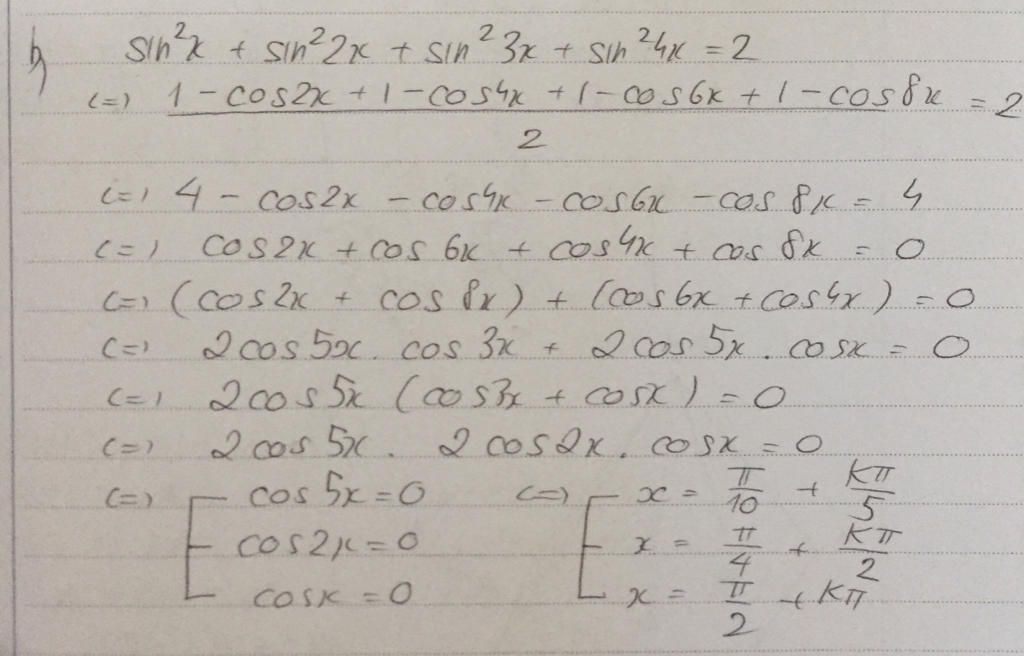 b) sin²x + sin²2x + sin²3x + sin²4x = 2
<=> (1 - cos2x + 1 - cos4x + 1 - cos6x + 1 - cos8x)/2 = 2
<=> 4 - cos2x - cos4x - cos6x - cos8x = 4
<=> cos2x + cos6x + cos4x + cos8x = 0
<=> (cos2x + cos8x) + (cos6x + cos4x) = 0
<=> 2cos5x. cos3x + 2cos5x. cosx = 0
<=> 2cos5x (cos3x + cosx) = 0
<=> 2cos5x. 2cos2x. cosx = 0
<=> [ cos5x = 0 <=> [ x = π/10 + Kπ/5
cos2x = 0 x = π/4 + Kπ/2
cosx = 0 x = π/2 + Kπ